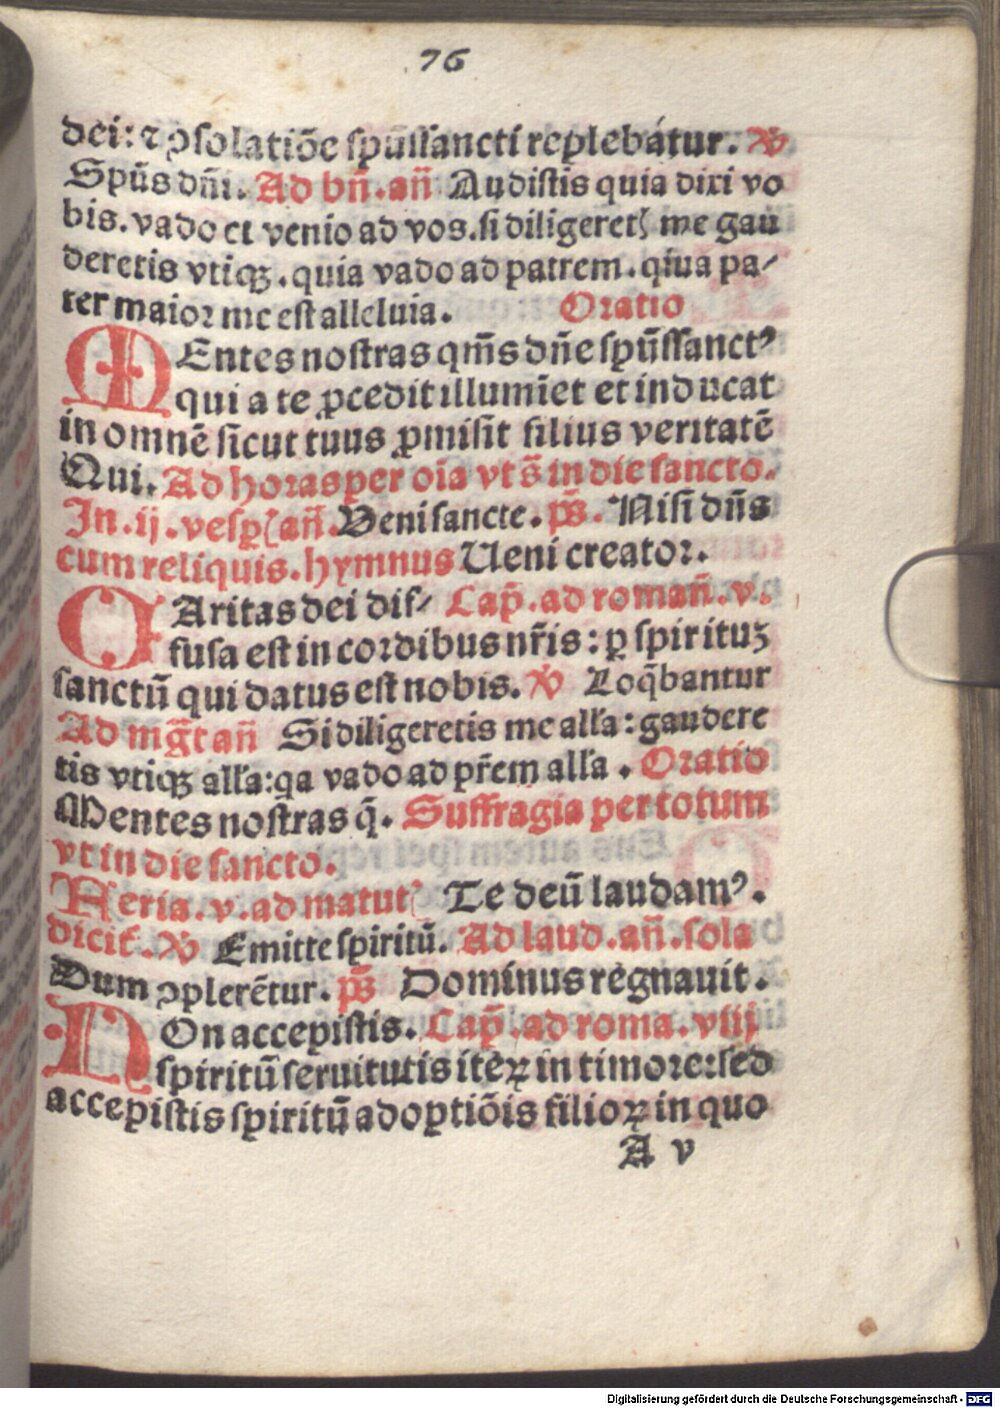 76
dei: ⁊ ꝯsolatiõe spũssancti replebátur. ℣
Spũs dñi. Ad bñ. añ Audistis quia dixi vo
bis. vado et venio ad vos. si diligeretꝭ me gau
deretis vtiqꝫ. quia vado ad patrem. qiua pa⸗
ter maior me est alleluia. Oratio
MEntes nostras qm̃s dñe spũssanctꝰ
qui a te ꝓcedit illumĩet et inducat
in omnẽ sicut tuus ꝓmisit filius veritatẽ
Qui. Ad horas per oĩa vt s̃ in die sancto.
In. ij. vesꝑꝭ añ. Veni sancte. ps̃. Nisi dñs
cum reliquis. hymnus Veni creator.
CAritas dei dif⸗ Cap̃. ad romañ. v.
fusa est in cordibus nr̃is: ꝑ spirituꝫ
sanctũ qui datus est nobis. ℣ Loq̃bantur
Ad mg̃t añ Si diligeretis me alľa: gaudere
tis vtiqꝫ alľa: qa vado ad pr̃em alľa. Oratio
Mentes nostras q̃. Suffragia per totum
vt in die sancto.
Feria. v. ad matutꝭ Te deũ laudamꝰ.
dicit̃. ℣ Emitte spiritũ. Ad laud. añ. sola
Dum ꝯplerẽtur. ps̃ Dominus regnauit.
NOn accepistis. Cap̃. ad roma. viij
spiritũ seruitutis iteꝝ in timore: sed
accepistis spiritũ adoptiõis filioꝝ in quo
A v
Digitalisierung gefördert durch die Deutsche Forschungsgemeinschaft - DFG